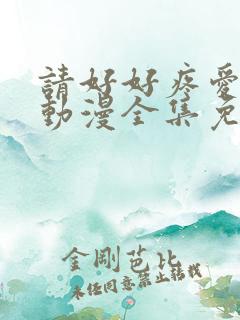 請好好疼愛
動漫全集免
金剛芭比
未任同意禁止轉載